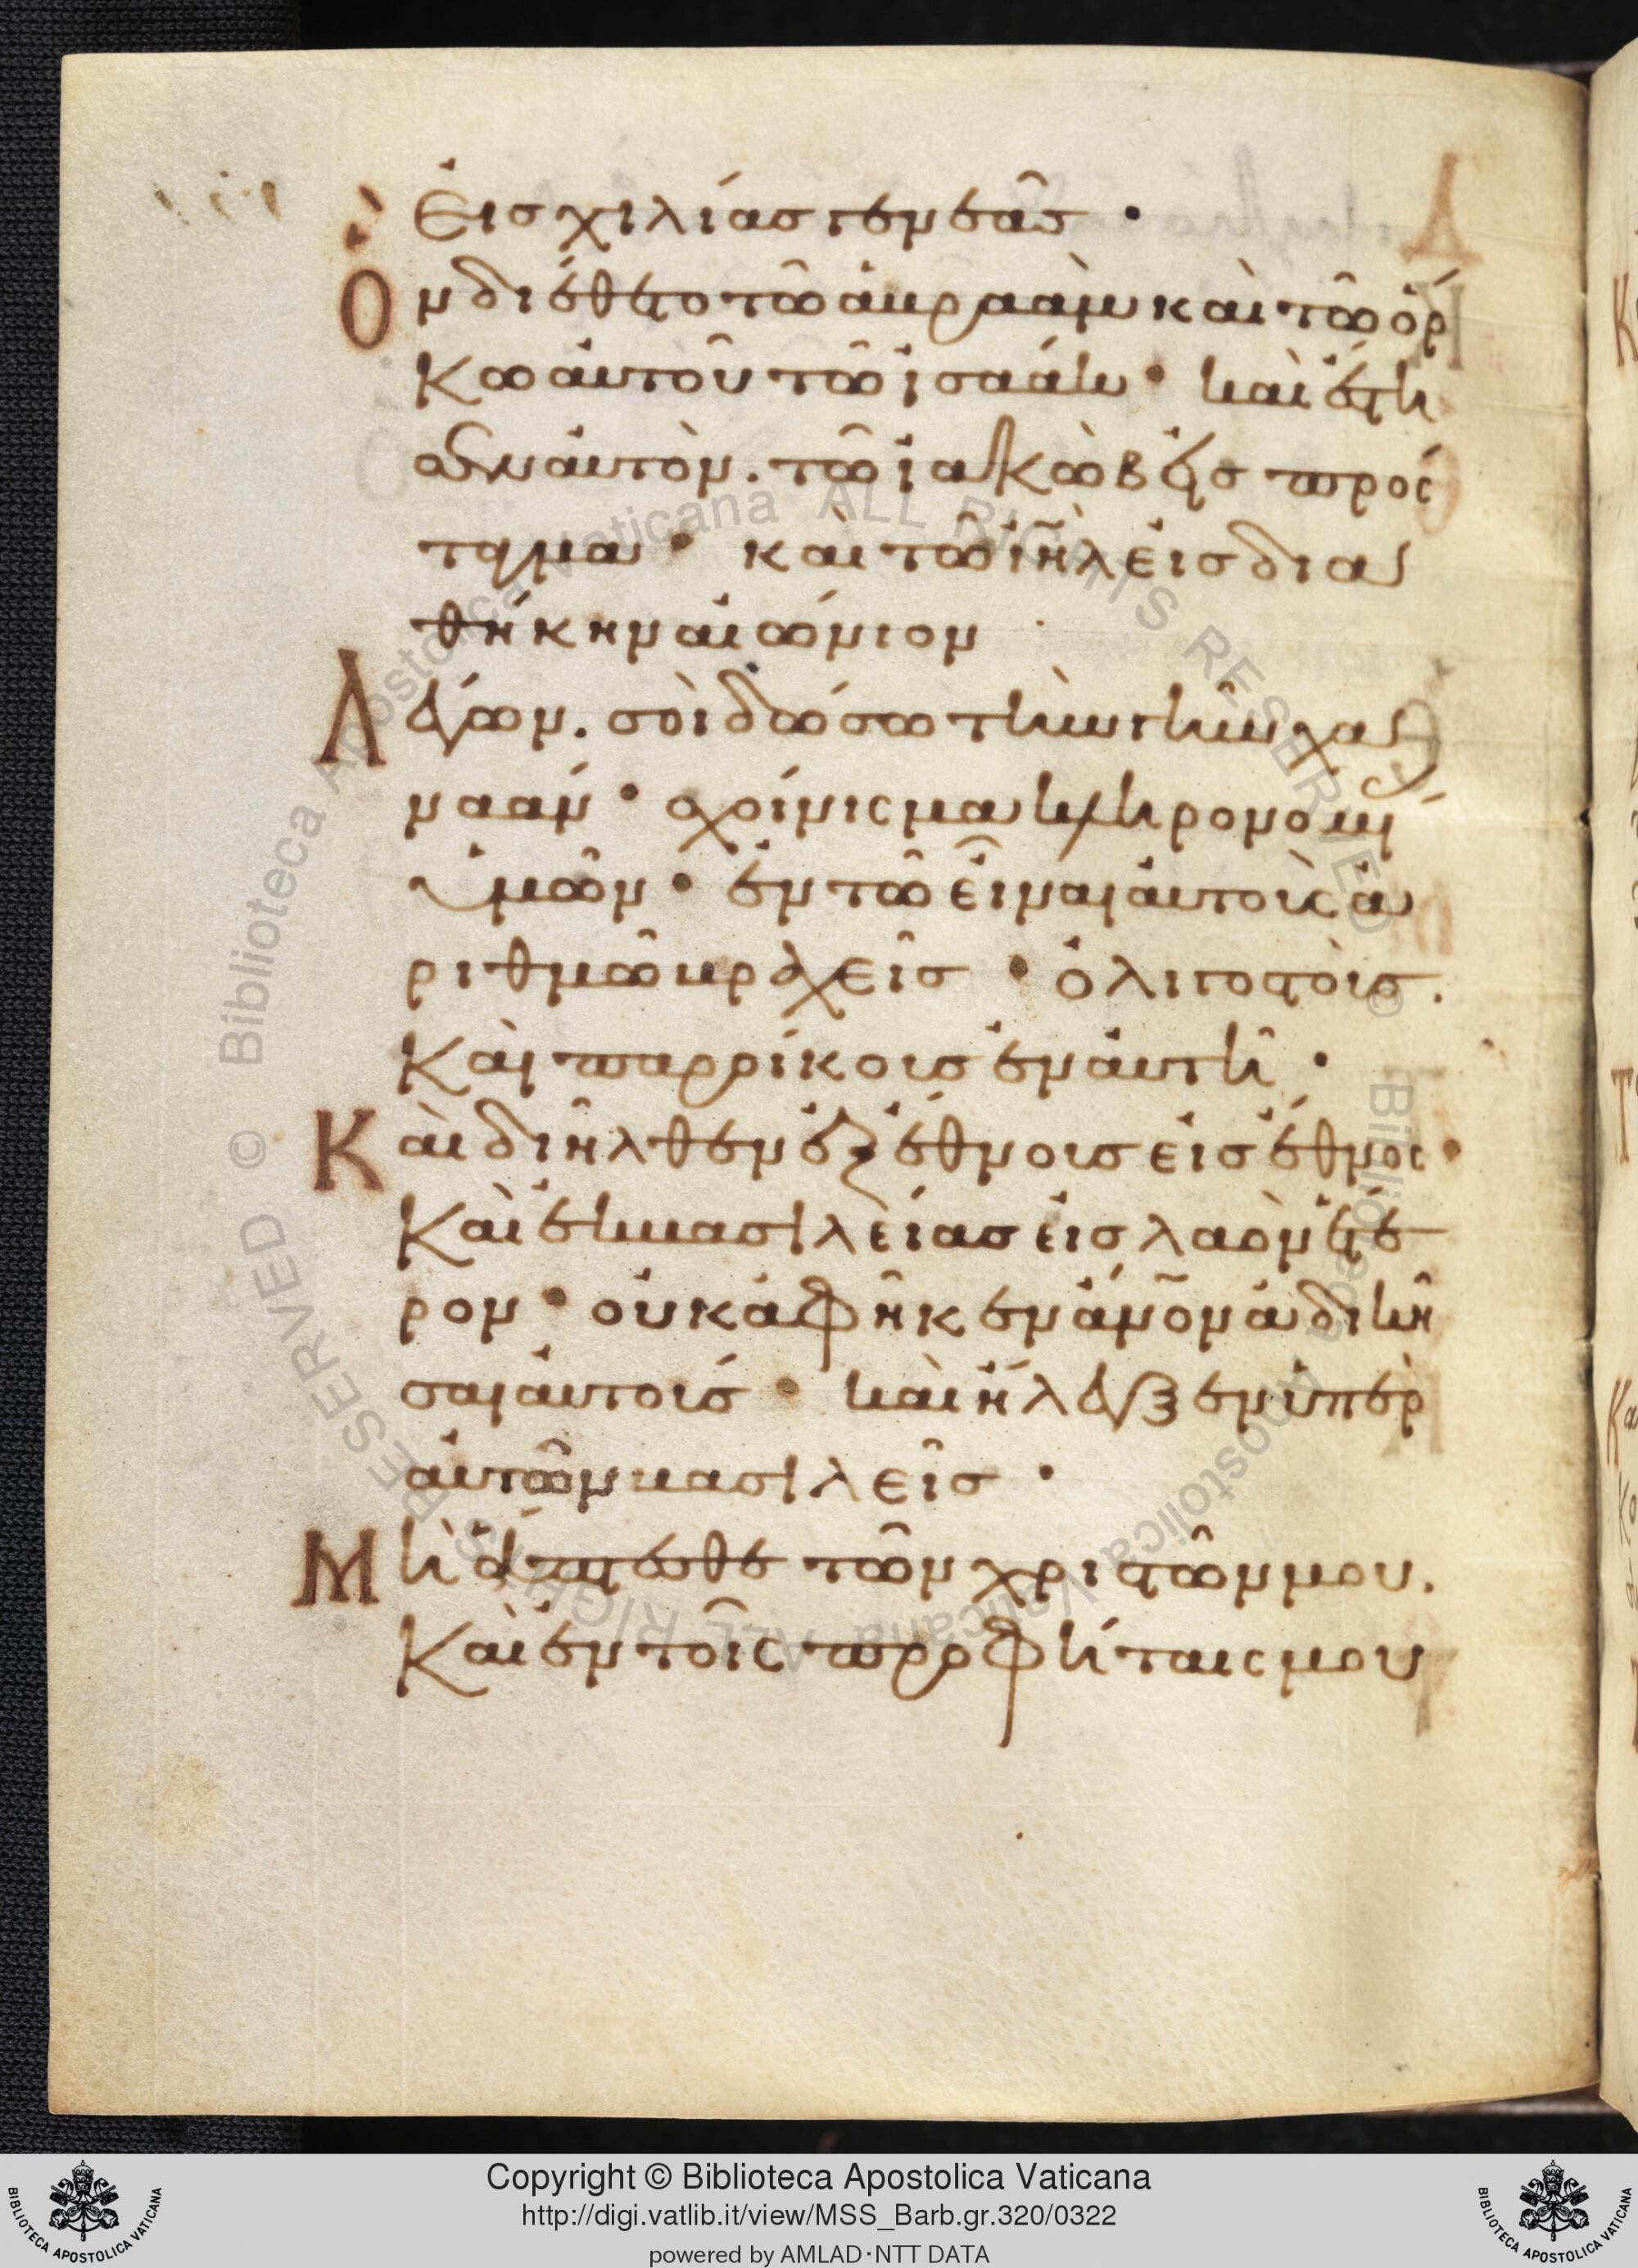 εἰς χιλίας γενεάς·
Ὃν διέθετο τῶ ἀβραὰμ καὶ τοῦ ὅρ
κου αὐτοῦ τῶ ἰσαάκ· καὶ ἔστη
σεν αὐτὸν. τῶ ἰακὼβ εἰς πρόσ
ταγμα· καὶ τῶ ἰῆλ εἰς δια
θήκην αἰώνιον
Λέγων. σοὶ δώσω τὴν γῆν χα
ναάν· σχοίνισμα κληρονομί
ὑμῶν· ἐν τῶ εἶναι αὐτοὺς ἀ
ριθμῶ βραχεῖς· ὀλιγοστοὺς.
Καὶ παροίκους ἐν αὐτῆ·
Καὶ διῆλθεν ἐξ ἔθνους εἰς ἔθνος·
Καὶ ἐκ βασιλείας εἰς λαὸν ἕτε
ρον· οὐκ ἀφῆκεν ἄν̅ο̅ν ἀδικῆ
σαι αὐτούς· καὶ ἤλεγξεν ὑπὲρ
αὐτῶν βασιλεῖς·
Μὴ ἅπτεσθε τῶν χριστῶν μου.
Καὶ ἐν τοῖς προφήταις μου
Copyright © Biblioteca Apostolica Vaticana
http://digi.vatlib.it/view/MSS_Barb.gr.320/0322
powered by AMLAD·NTT DATA
BIBLIOTECA APOSTOLICA VATICANA
BIBLIOTECA APOSTOLICA VATICANA
© Biblioteca Apostolica Vaticana ALL RIGHTS RESERVED © Biblioteca Apostolica Vaticana ALL RIGHTS RESERVED